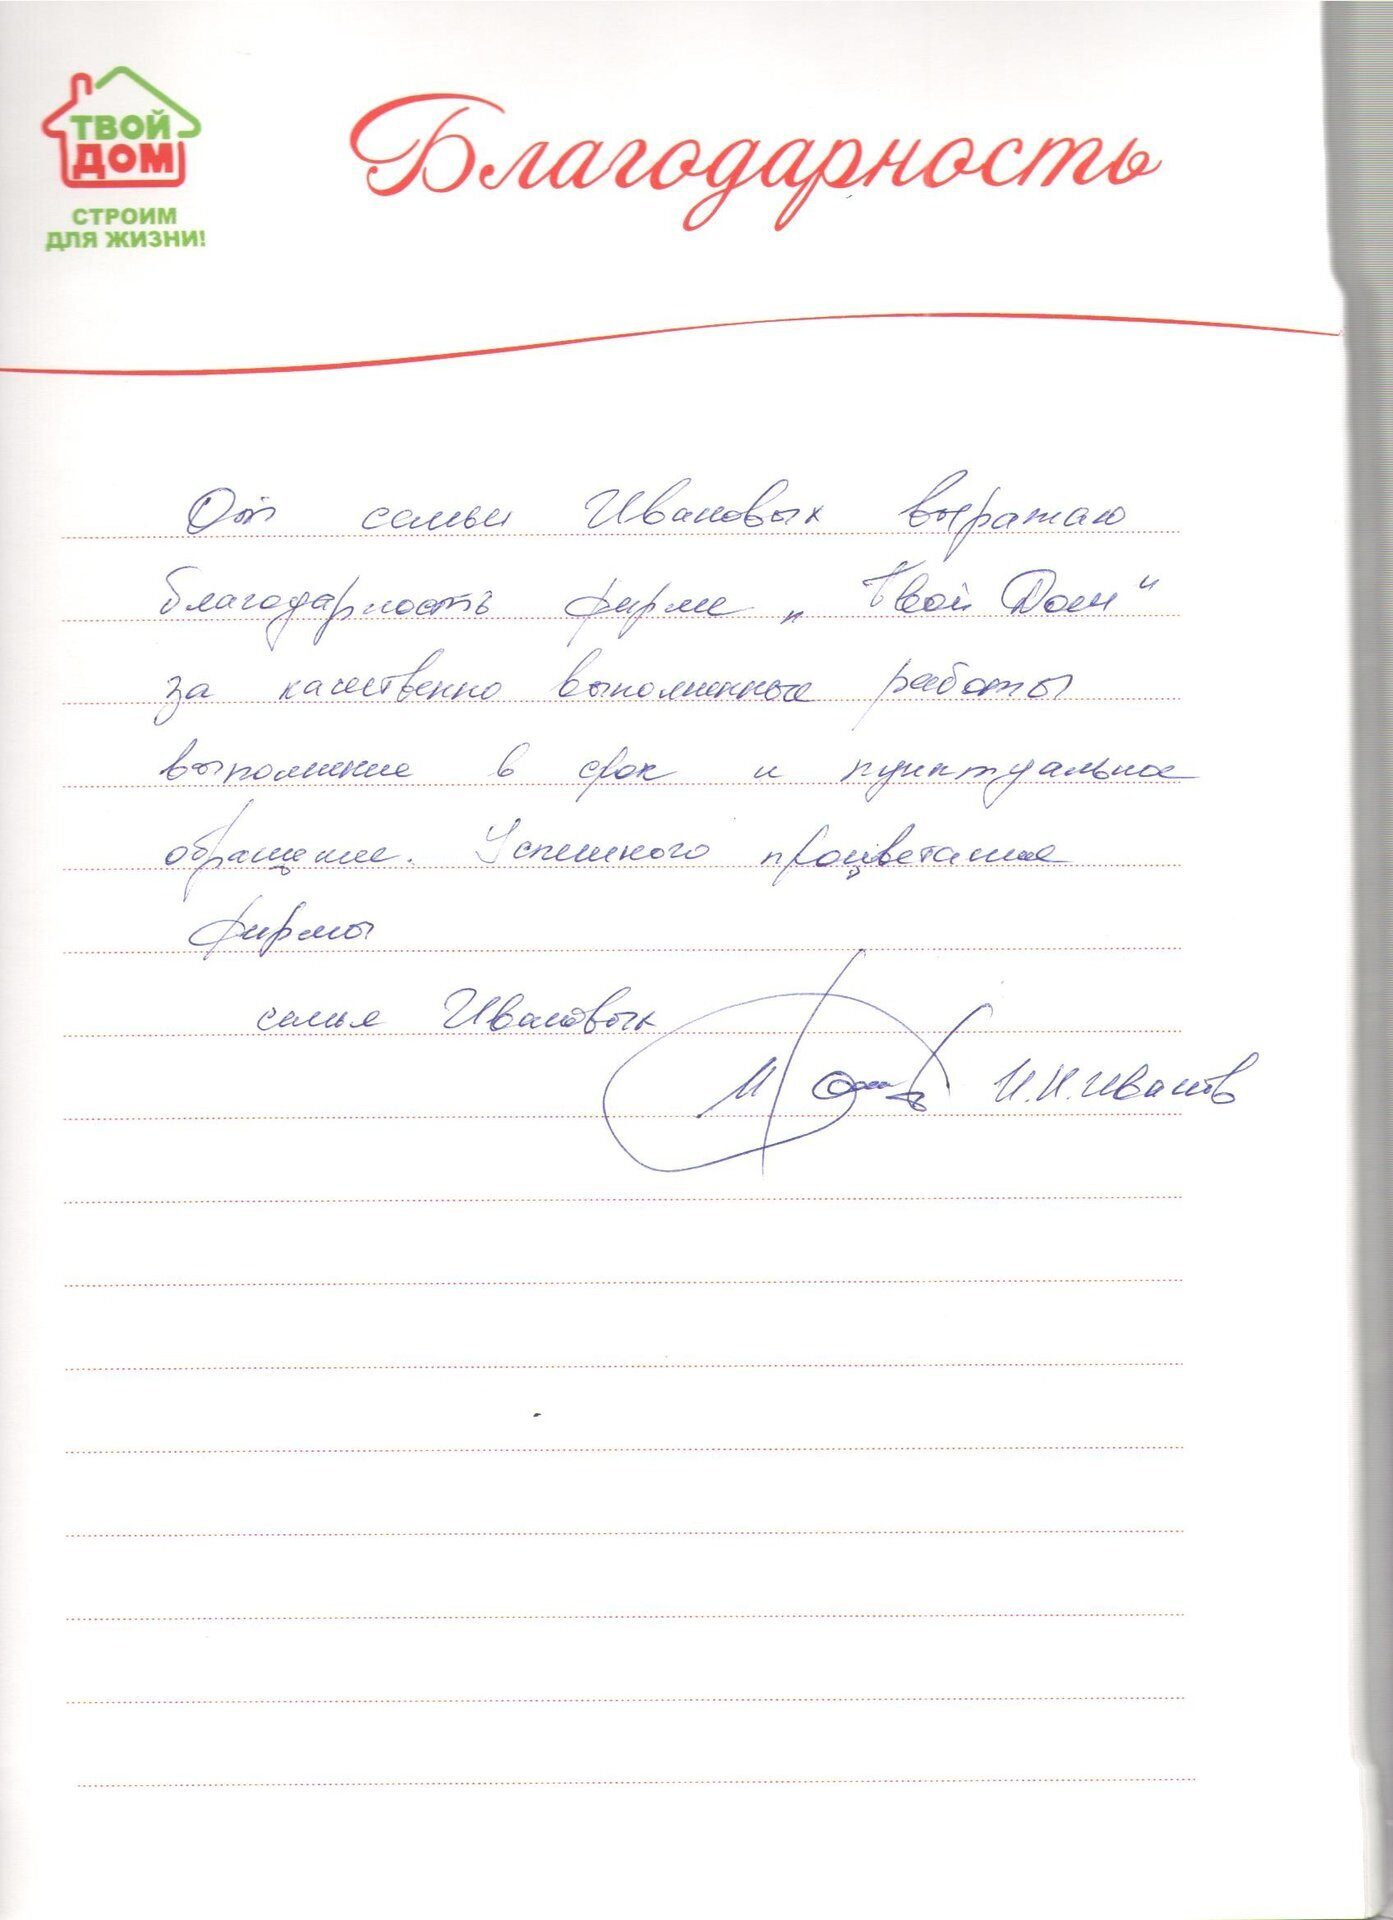 ТВОЙ
ДОМ
СТРОИМ
ДЛЯ ЖИЗНИ!
Благодарность
От семьи Ивановых выражаю
благодарность фирме „Твой Дом“
за качественно выполненные работы
выполнение в срок и пунктуальное
обращение. Успешного процветания
фирмы
семья Ивановых
И.И.Иванов